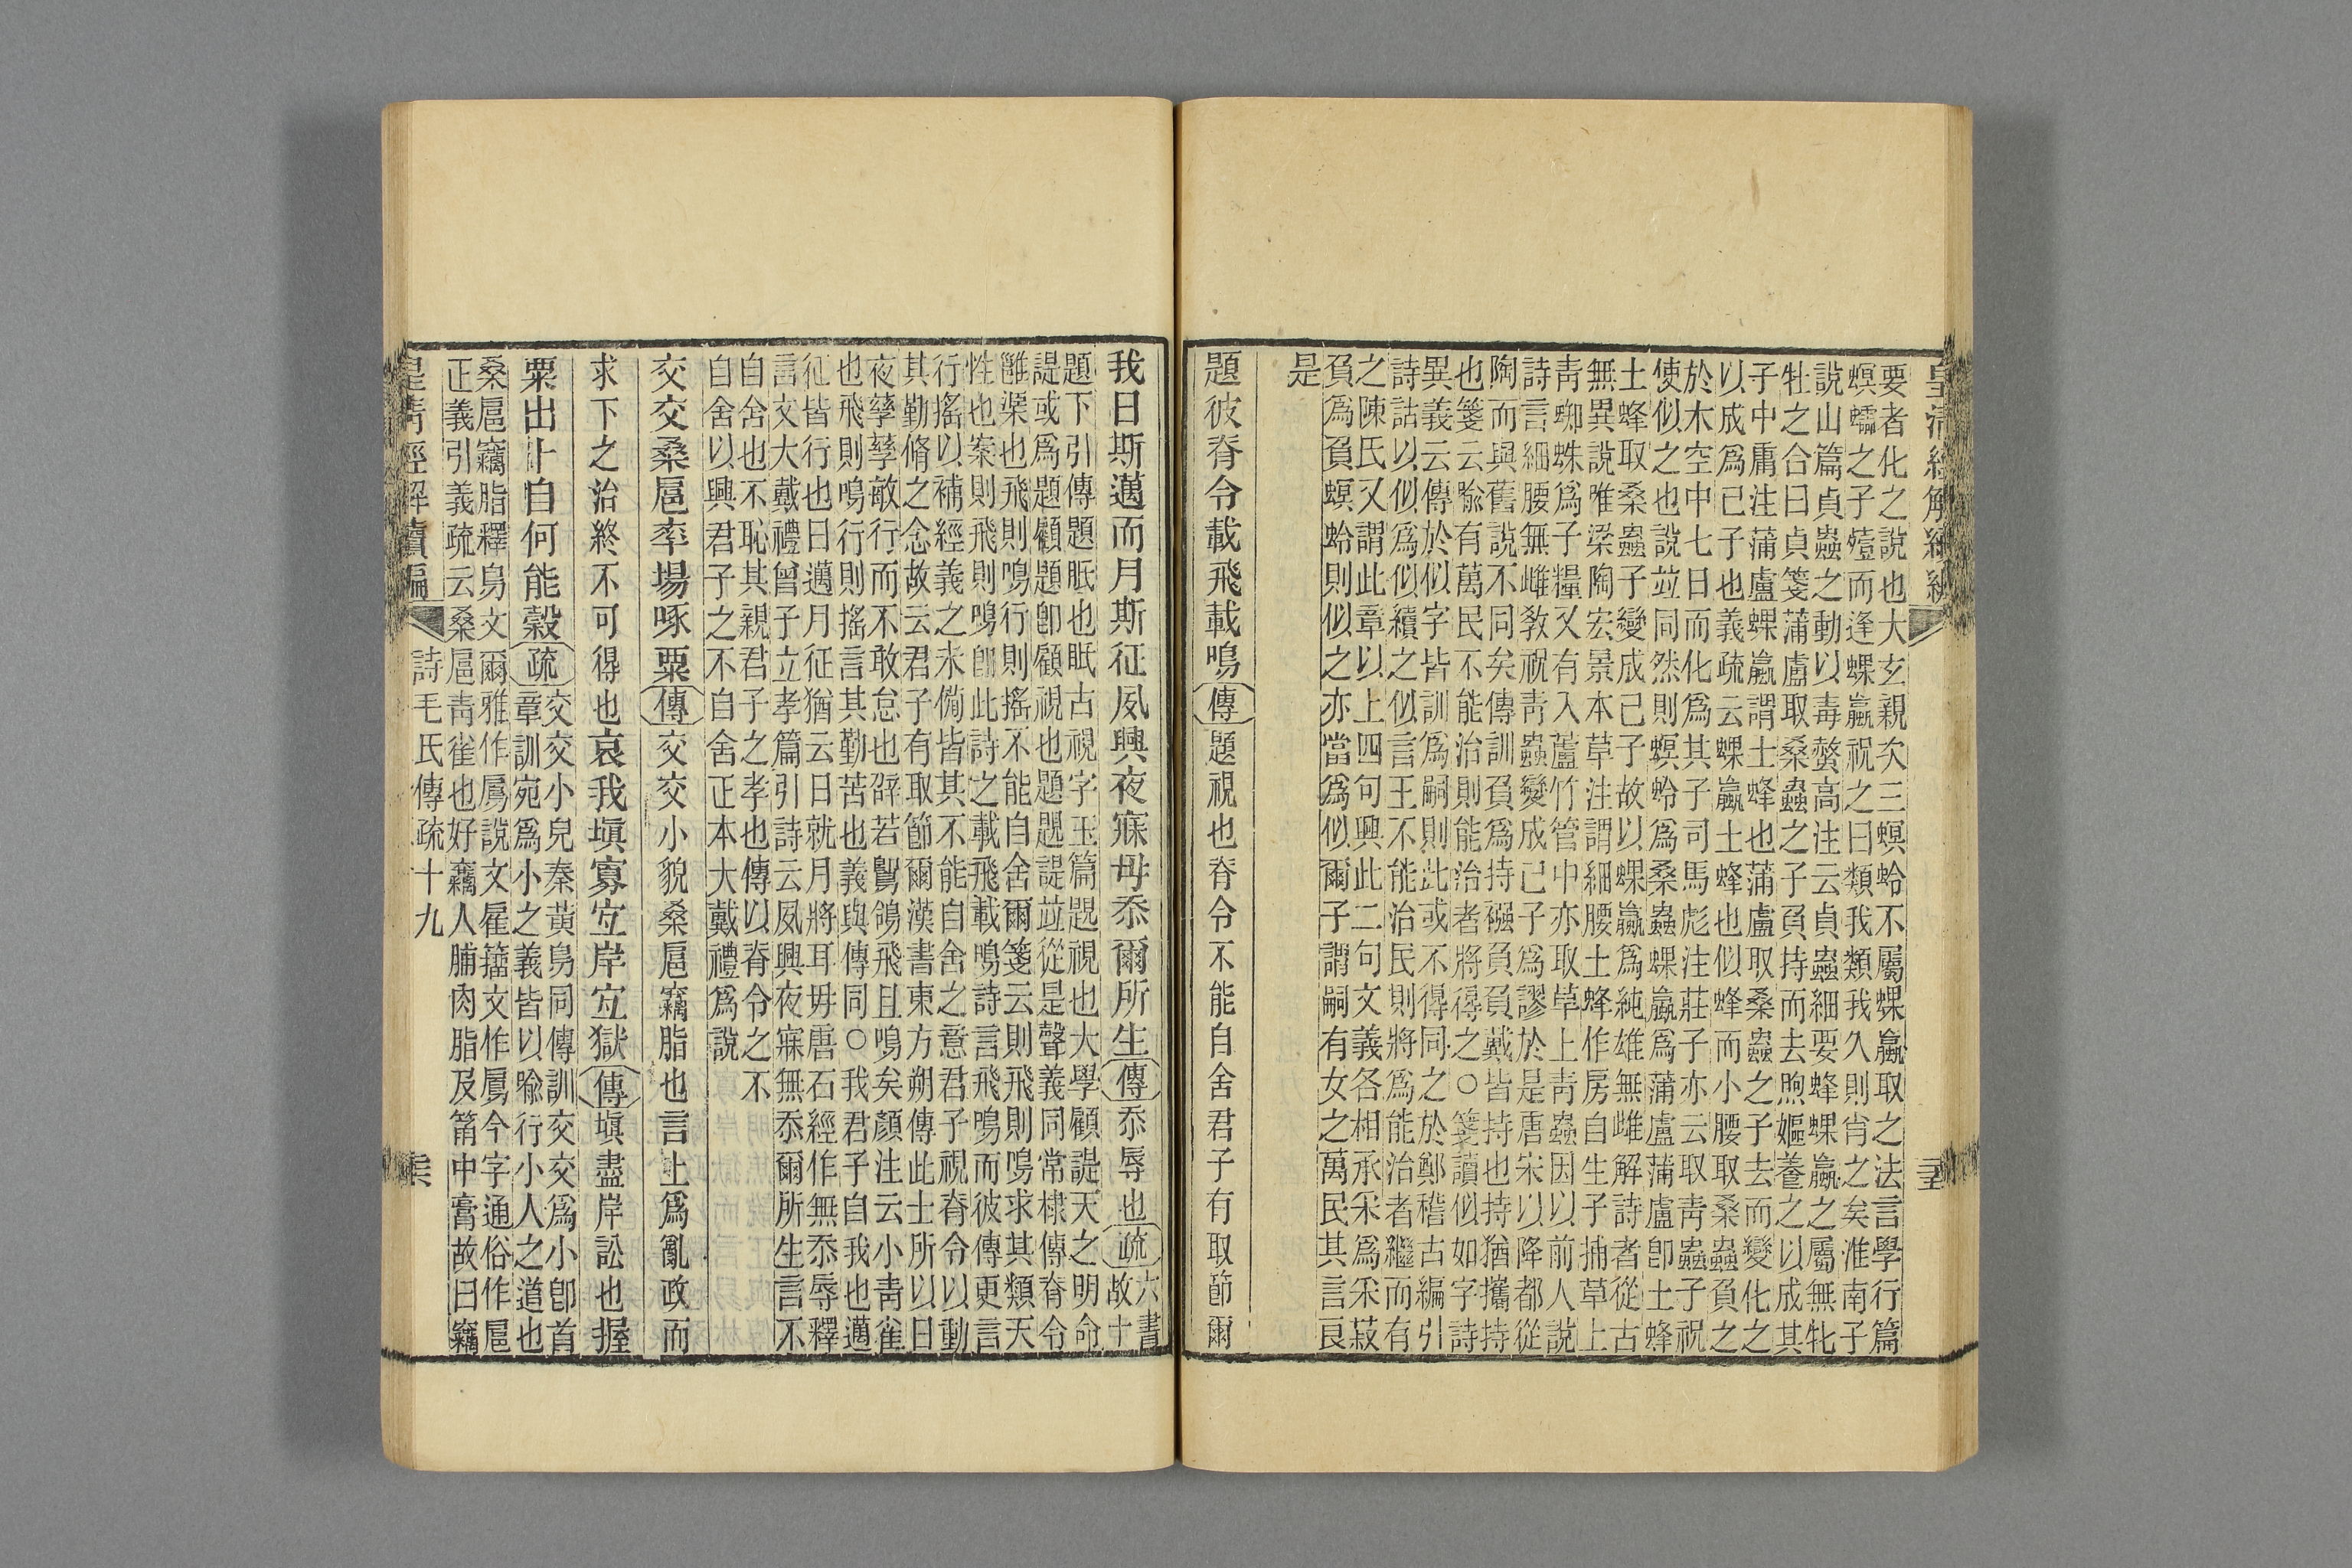 皇清經解續編
要者化之說也大玄親次三螟蛉不屬蜾蠃取之法言學行篇
螟蠕之子殪而逢蜾蠃祝之曰類我類我久則肖之矣淮南子
說山篇貞蟲之動以毒螫高注云貞蟲細要蜂蜾蠃之屬無牝
牡之合曰貞箋蒲盧取桑蟲之子負持而去煦嫗養之以成其
子中庸注蒲盧蜾蠃謂土蜂也蒲盧取桑蟲之子去而變化之
以成爲已子也義疏云蜾蠃土蜂也似蜂而小腰取桑蟲負之
於木空中七日而化爲其子司馬彪注莊子亦云取青蟲子祝
使似之也說竝同然則螟蛉爲桑蟲蜾蠃爲蒲盧蒲盧卽土蜂
土蜂取桑蟲子變成己子故以蜾蠃爲純雄無雌解詩者從古
無異說唯梁陶宏景本草注謂細腰土蜂作房自生子捕草上
青蜘蛛爲子糧又有入蘆竹管中亦取草上青蟲因以前人說
詩言細腰無雌敎祝青蟲變成已子爲謬於是唐宋以降都從
陶而與舊說不同矣傳訓負爲持襁負負戴皆持也持猶攜持
也箋云喻有萬民不能治則能治者將得之○箋讀似如字詩
異義云傳於似字皆訓爲嗣則此或不得同之於鄭稽古編引
詩詁以似爲似續之似言王不能治民則將爲能治者繼而有
之陳氏又謂此章以上四句興此二句文義各相承采爲采菽
負爲負螟蛉則似之亦當爲似爾子謂嗣有女之萬民其言良
是
題彼脊令載飛載鳴傳題視也脊令不能自舍君子有取節爾
我日斯邁而月斯征夙興夜寐毋忝爾所生傳忝辱也疏六書
故十
題下引傳題眂也眂古視字玉篇題視也大學顧諟天之明命
諟或爲題顧題卽顧視也題題諟竝從是聲義同常棣傳脊令
雝渠也飛則鳴行則搖不能自舍爾箋云則飛則鳴求其類天
性也案則飛則鳴卽此詩之載飛載鳴詩言飛鳴而彼傳更言
行搖以補經義之未備皆其不能自舍之意君子視脊令以動
其勤脩之念故云君子有取節爾漢書東方朔傳此士所以日
夜孳孳敏行而不敢怠也辟若鶺鴒飛且鳴矣顏注云小青雀
也飛則鳴行則搖言其勤苦也義與傳同○我君子自我也邁
征皆行也日邁月征猶云日就月將耳毋唐石經作無忝辱釋
言文大戴禮曾子立孝篇引詩云夙興夜寐無忝爾所生言不
自舍也不恥其親君子之孝也傳以脊令之不
自舍以興君子之不自舍正本大戴禮爲說
交交桑扈率場啄粟傳交交小貌桑扈竊脂也言上爲亂政而
求下之治終不可得也哀我塡寡宜岸宜獄傳塡盡岸訟也握
粟出卜自何能穀疏交交小兒秦黃鳥同傳訓交交爲小卽首
章訓宛爲小之義皆以喻行小人之道也
桑扈竊脂釋鳥文爾雅作鳸說文雇籀文作鳸今字通俗作扈
正義引義疏云桑扈青雀也好竊人脯肉脂及筩中膏故曰竊
皇清經解續編 詩毛氏傳疏十九